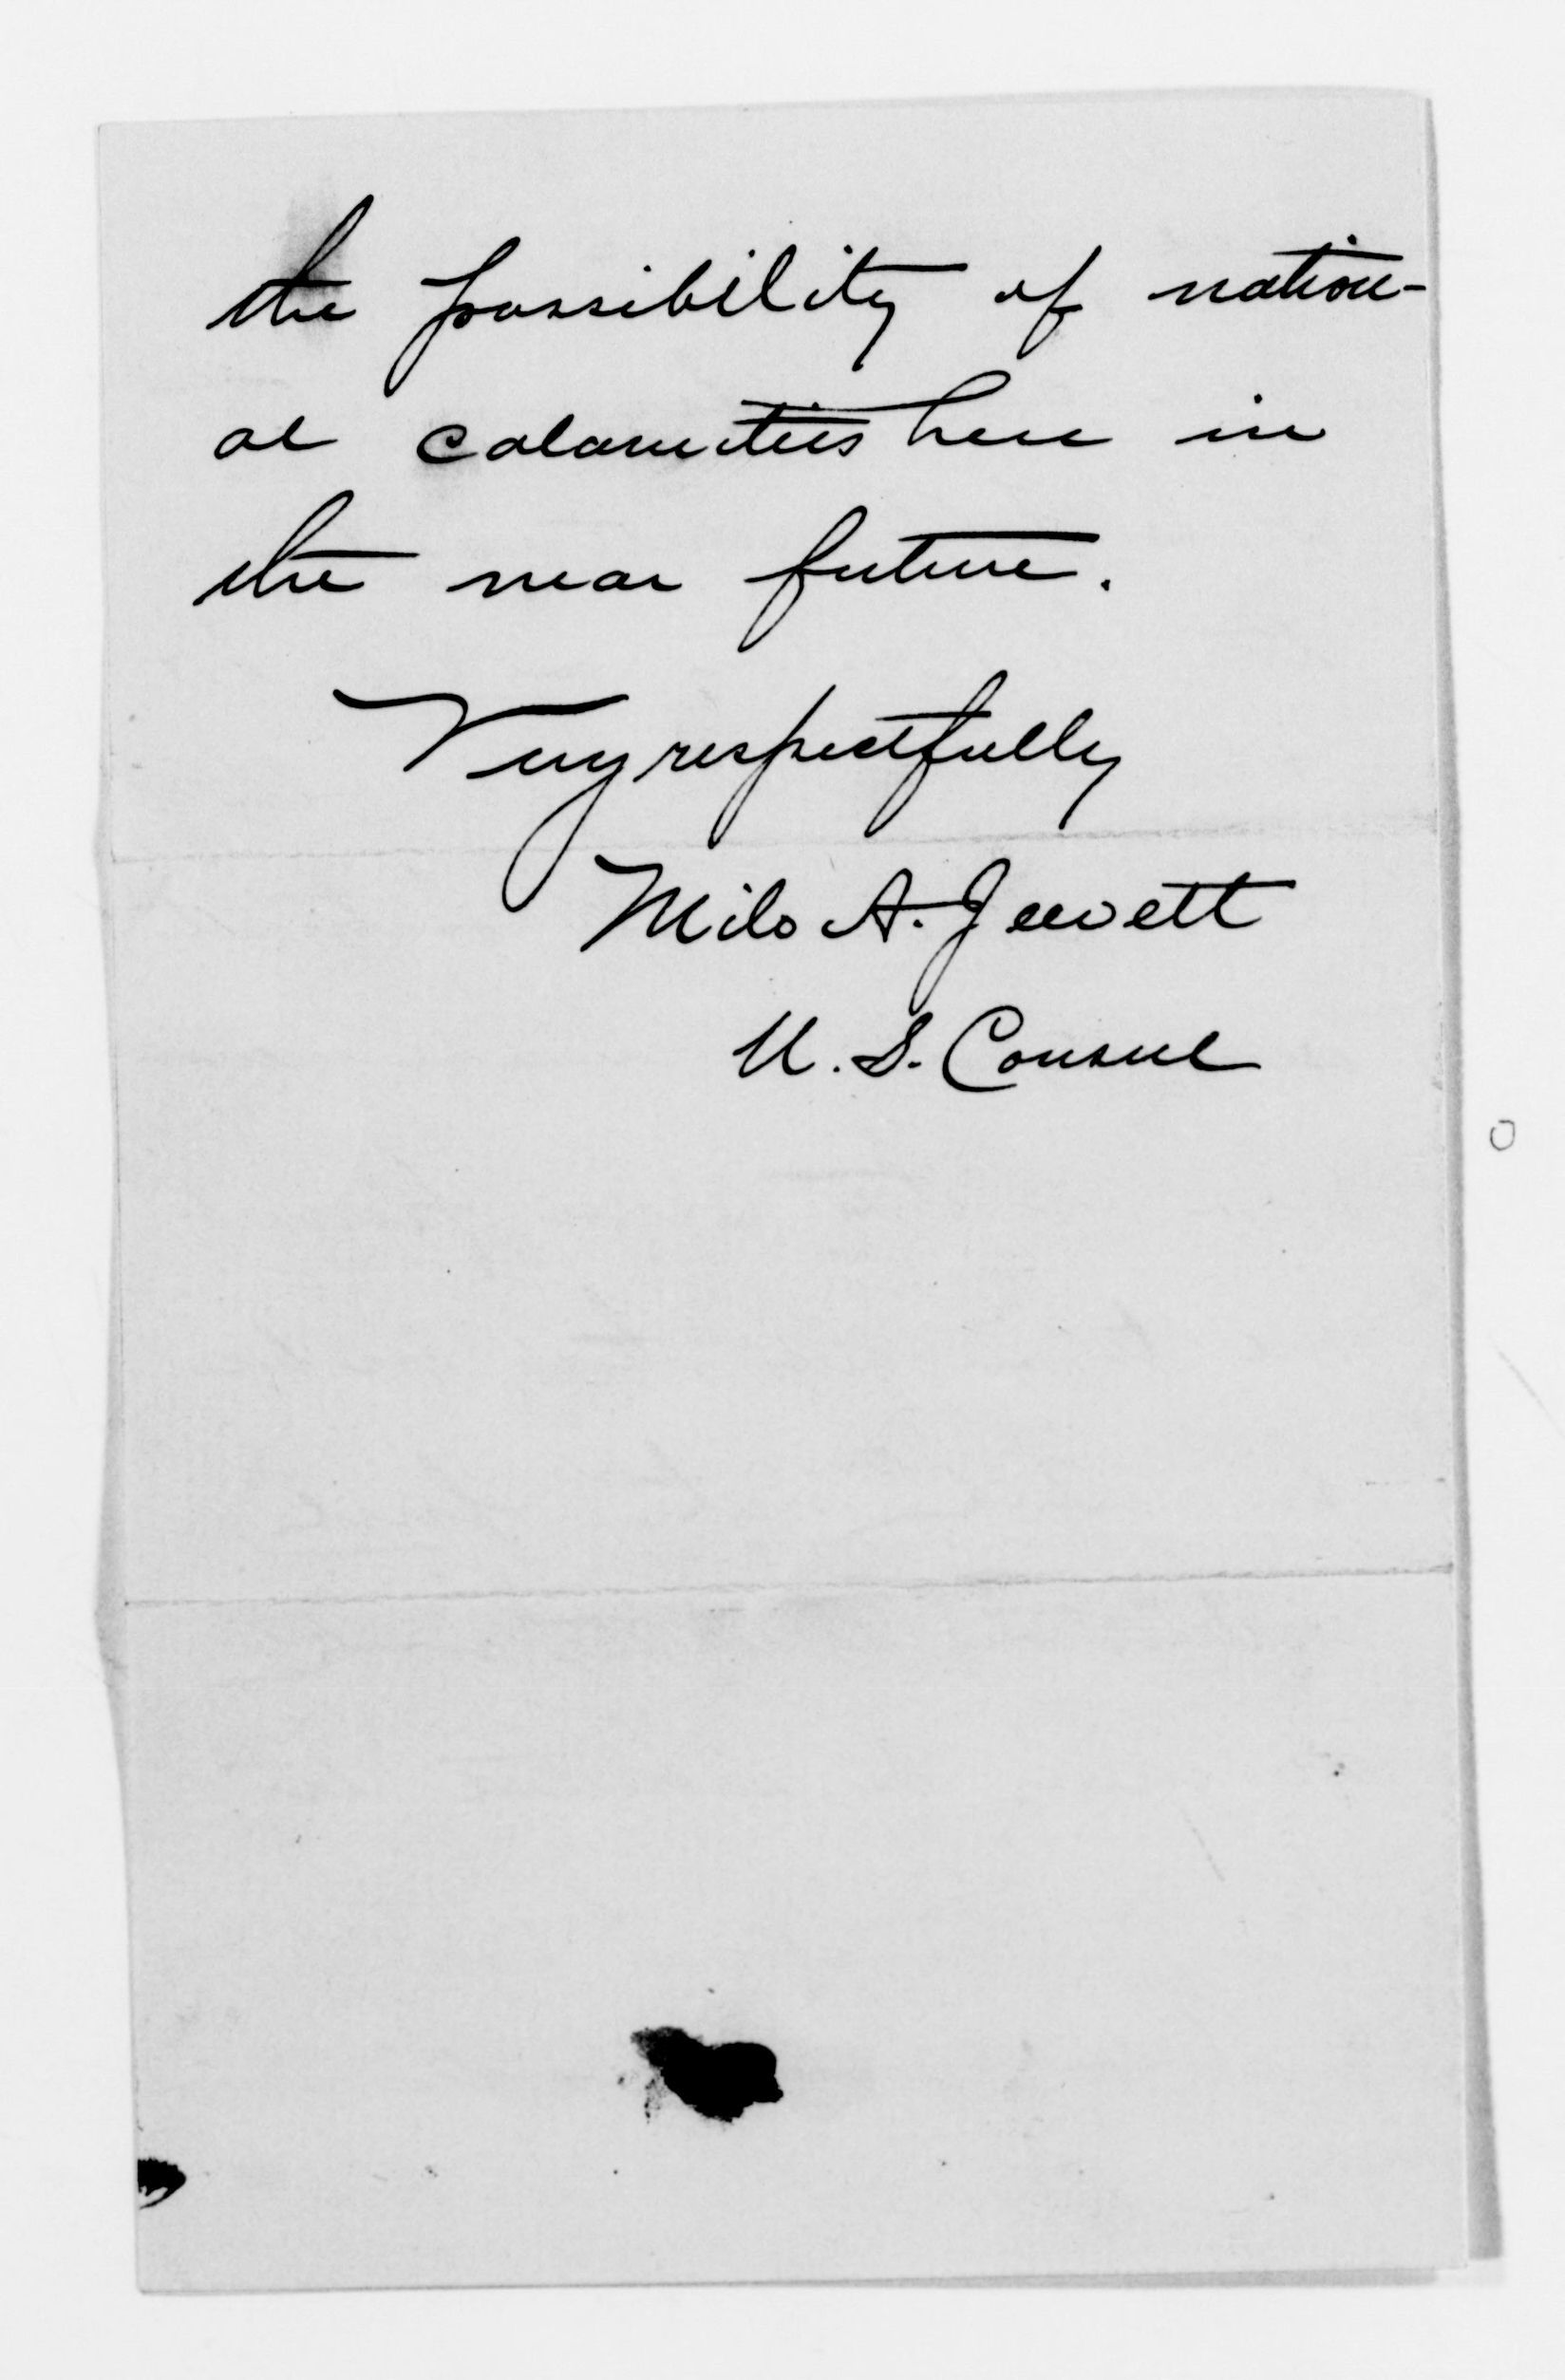 the possibility of nation-
al calamities here in
the near future.
Very respectfully
Milo A. Jewett
U. S. Consul